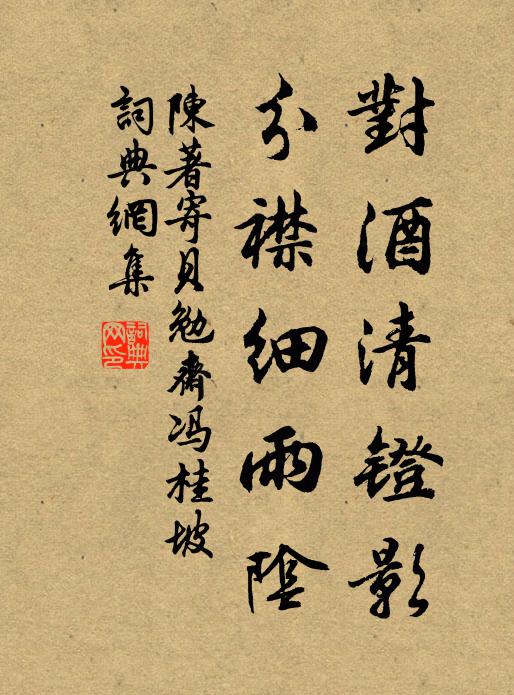 對酒清鐙影
分襟細雨陰
陳著寄貝勉齋冯桂坡
詞典網集
詞典
网印